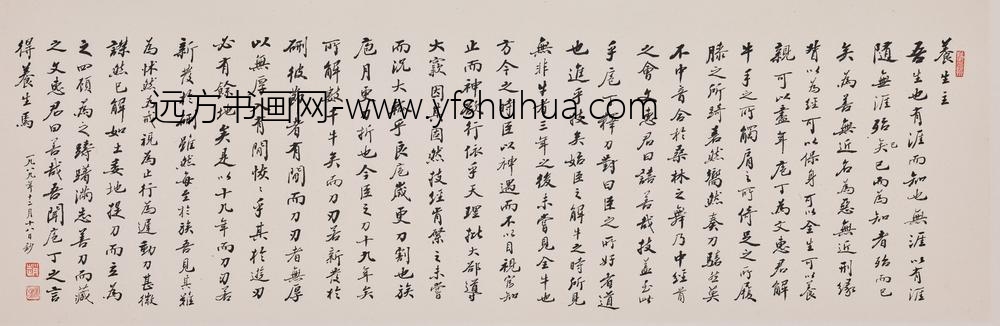 養生主
吾生也有涯而知也無涯以有涯
隨無涯殆矣已而為知者殆而已
矣為善無近名為惡無近刑緣
督以為經可以保身可以全生可以養
親可以盡年庖丁為文惠君解
牛手之所觸肩之所倚足之所履
膝之所踦砉然嚮然奏刀騞然莫
不中音合於桑林之舞乃中經首
之會文惠君曰譆善哉技蓋至此
乎庖丁釋刀對曰臣之所好者道
也進乎技矣始臣之解牛之時所見
無非牛者三年之後未嘗見全牛也
方今之時臣以神遇而不以目視官知
止而神欲行依乎天理批大郤導
大窾因其固然技經肯綮之未嘗
而況大軱乎良庖歲更刀割也族
庖月更刀折也今臣之刀十九年矣
所解數千牛矣而刀刃若新發於
硎彼節者有間而刀刃者無厚
以無厚入有間恢〻乎其於遊刃
必有餘地矣是以十九年而刀刃若
新發於硎雖然每至於族吾見其難
為怵然為戒視為止行為遲動刀甚微
謋然已解如土委地提刀而立為
之四顧為之躊躇滿志善刀而藏
之文惠君曰善哉吾聞庖丁之言
得養生焉
一九八九年十二月十六日鈔
远方书画网-www.yfshuhua.com